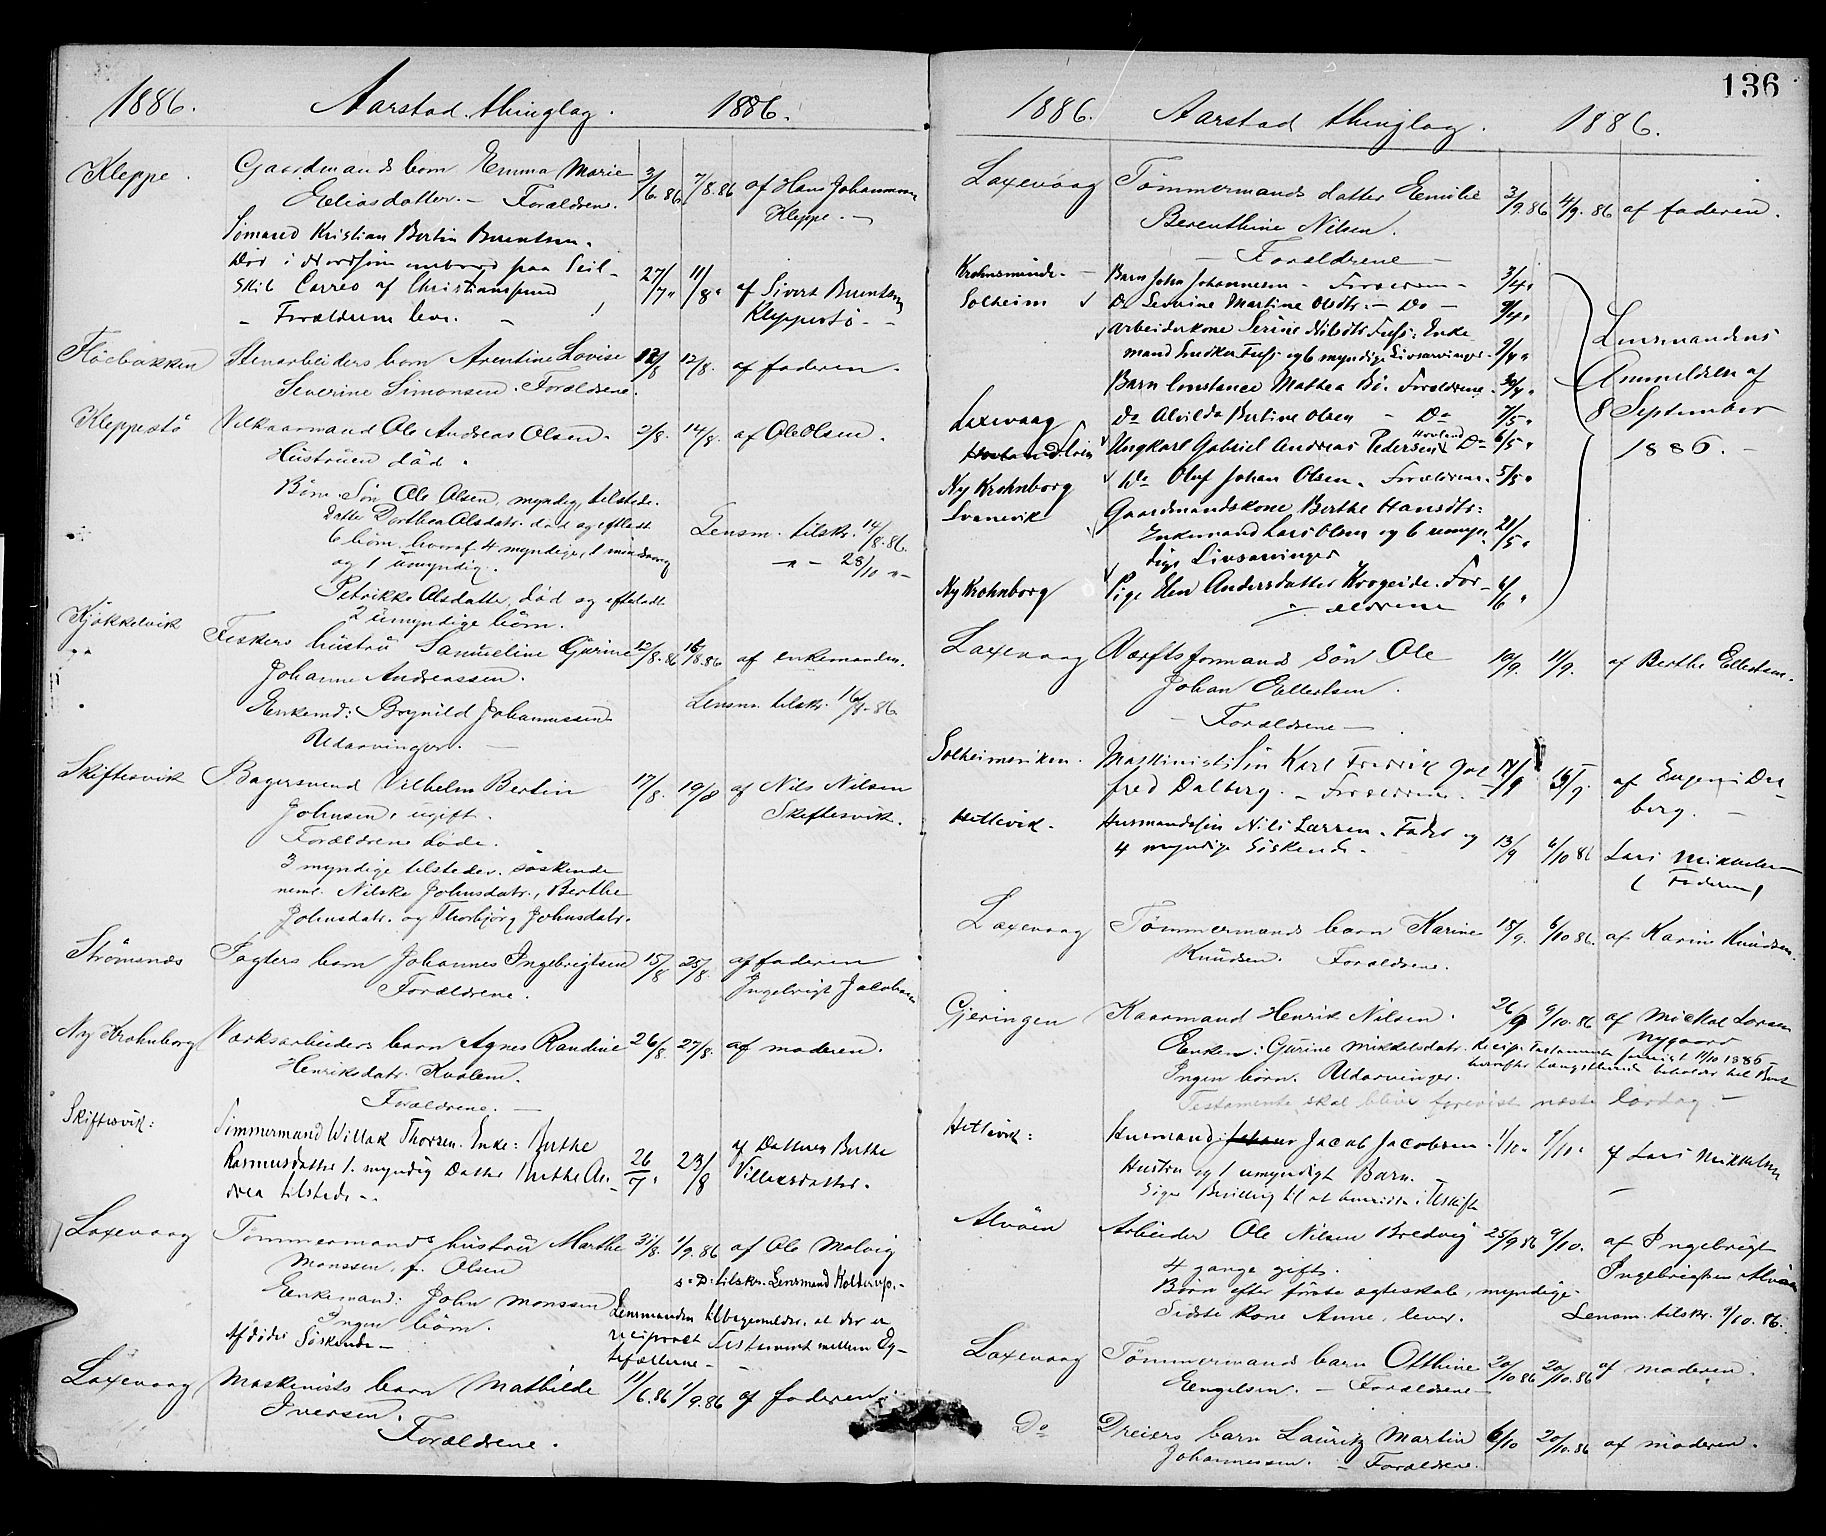 1886. Aarstad thinglag. 1886.
Kleppe. Gaardmands barn Emma Marie 3/6.86 7/8.86 af Hans Johannesen
Eliasdatter. – Forældrene. Kleppe. –
Sømand Kristian Bertin Berntsen.
Død i Nordsjøen ombord paa Seil-
skib Carreo af Christianssund 27/7 " 11/8 " af Sivert Berntsen
– Forældrene lever. – Kleppestø –
Fløebakken Stenarbeiders barn Arentine Lovise 12/8 12/8. af faderen.
Severine Simonsen. Forældrene.
Kleppestø Vilkaarmand Ole Andreas Olsen. 2/8. 14/8. af Ole Olsen.
Hustruen død.
Børn. Søn Ole Olsen, myndig, tilstede.
datter Dorthea Olsdatr. død og efterladt
6 børn, hvoraf 4 myndige, 1 mindreaarig Lensm. tilskr. 14/8.86.
og 1 umyndig. – " – 28/10 " –
Petrikke Olsdatter, død og efterladt
2 umyndige børn.
Kjøkkelvik Fiskers hustru Samueline Gurine 12/8.86 16/8.86 af enkemanden.
Johanne Andreassen.
Enkemd: Brynild Johannessen Lensm. tilskr. 16/8.86
Udarvinger. –
Skiftesvik Bagersvend Vilhelm Bertin 17/8. 19/8 af Nils Nilsen
Johnsen, ugift. Skiftesvik.
Forældrene døde.
3 myndige tilstedev. søskende
neml. Nilske Johnsdatr., Berthe
Johnsdatr. og Thorbjørg Johnsdatr.
Strømsnæs Fagters barn Johannes Ingebrigtsen 15/8 25/8. af faderen
Forældrene. Ingebrigt Jacobsen
Ny Krohnborg Værksarbeiders barn Agnes Randine 26/8. 27/8. af moderen.
Henriksdatr. Kvalem.
Forældrene. –
Skiftesvik: Timmermand Villak Thorsen. Enke: Berthe
Rasmusdatter 1. myndig Datter Berthe An- 26/7 " 23/8 af Datteren Berthe
drea tilstede –. Villaksdatter.
Laxevaag Tømmermands hustru Marthe 31/8. 1/9.86 af Ole Molvig
Monssen, f. Olsen s. D. tilskr. Lensmand Kolterup. –
Enkemand: John Monssen Lensmanden tilbagemelder. at der er
Ingen børn. reciprokt Testament mellem Eg-
Afdødes Søskende – tefællerne –
Laxevaag Maskinists barn Mathilde 11/6.86 1/9.86 af faderen.
Iversen.
Forældrene.
136
1886. Aarstad thinglag. 1886.
Laxevaag Tømmermands datter Emilie 3/9.86 4/9.86 af faderen.
Berenthine Nilsen.
– Forældrene –
Krohnsminde. – Barn John Johannesen – Forældrene – 3/4 "
Solheim Do Severine Martine Olsdtr. – Do – 9/4 "
Arbeiderkone Serine Nilsdtr Fuss: Enke-
mand Endker Fuss og 6 myndige Livsarvinger. 9/4 " Lensmandens
Barn Constance Mathea Bø. Forældrene. 30/4 " Anmeldelse af
Laxevaag Do Alvilda Bertine Olsen – Do 7/5 " 8 September
Ungkarl Gabriel Andreas Pedersen Hovland Do 6/5 " 1886. –
Ny Krohnborg Do Oluf Johan Olsen. Forældrene. 5/5 "
Svanevik Gaardmandskone Berthe Hansdtr:
Enkemand Lars Olsen og 6 umyn- 21/5 "
dige Livsarvinger
Ny Krohnborg Pige Elen Andersdatter Krogeide. For- 6/6 "
ældrene
Laxevaag Værftsformands søn Ole 10/9. 11/9. af Berthe Ellertsen.
Johan Ellertsen.
– Forældrene –
Solheimsviken. Maskinistsøn Karl Fredrik Got- af Eugen Dal-
fred Dalberg. – Forældrene. berg. –
Hettevik. Husmandssøn Nils Larsen. Fader og 13/9 6/10 86 Lars Mikkelsen
4 myndige Søskende. ( Faderen )
Laxevaag Tømmermands barn Karine 18/9. 6/10 86. af Karin Knudsen.
Knudsen. Forældrene.
Gjeringen Kaarmand Henrik Nilsen. 26/9 9/10.86 af Mickal Larsen
Nygaard
Enken: Gurine Mikkelsdatr. Recip. Testamente forevist 11/10 1886 –
Ingen børn. Udarvinger. hvorefter Længstlevende beholder hel Boet
Testamente skal blive forevist næste Lørdag. –
Hettevik: Husmand Jacob Jacobsen 1/10 " 9/10 " af Lars Mikkelsen
Hustru og 1 umyndigt Barn. –
Siger Bevilling til at hensidde i Uskifte
Alvøen Arbeider Ole Nilsen Bredvig 25/9 86 9/10. af Ingebrigt
4 gange gift. Ingebrigtsen Alvøen
Børn efter første ægteskab, myndige.
Sidste kone Anne, lever. Lensm. tilskr. 9/10.86.
Laxevaag Tømmermands barn Otthine 20/10 86 20/10.86 af moderen.
Engelsen. – Forældrene –
Do Dreiers barn Lauritz Martin 6/10 20/10.86 af moderen.
Johannessen. – Forældrene.